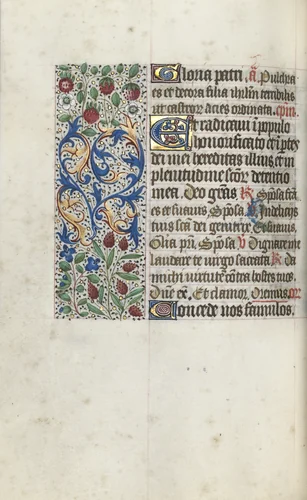 Gloria patri, a. Pulchra
es et decora filia ihrlm terribilis
ut castrorum acies ordinata. cpm
Et radicaui in populo
honorificato et in ptes
dei mei hereditas illius et in
plenitudine scor detentio
mea. Deo gras. R Sponsa
es et futurus Sponsa V
tuis sca dei genitrix
Glia pri. Sponsa V Dignare me
laudare te uirgo sacrata R da
michi uirtute contra hostes tuos
Dne ex. Et clamor. Oremus. or
Concede nos famulos.